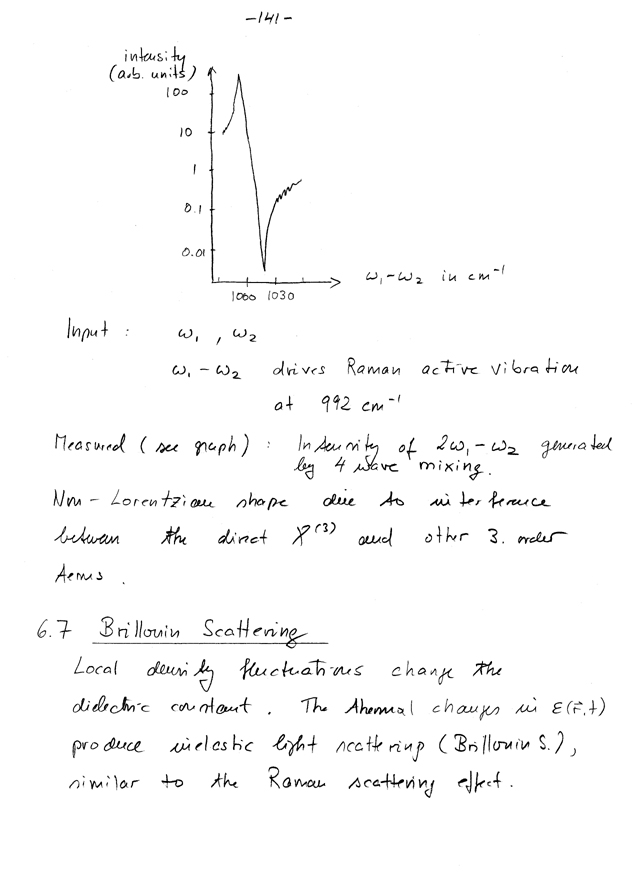 -141-
intensity
(arb. units)
100
10
1
0.1
0.01
1000 1030
ω₁-ω₂ in cm⁻¹
Input : ω₁ , ω₂
ω₁ - ω₂ drives Raman active vibration
at 992 cm⁻¹
Measured (see graph) : Intensity of 2ω₁-ω₂ generated
by 4 wave mixing.
Non-Lorentzian shape due to interference
between the direct χ⁽³⁾ and other 3. order
terms.
6.7 Brillouin Scattering
Local density fluctuations change the
dielectric constant. The thermal changes in ε(r⃗,t)
produce inelastic light scattering (Brillouin S.),
similar to the Raman scattering effect.